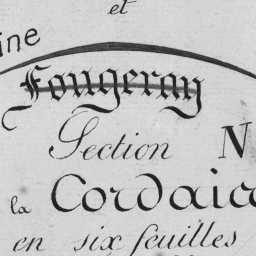 et
ine
Fougeray
Section N
la Cordaie
en six feuilles